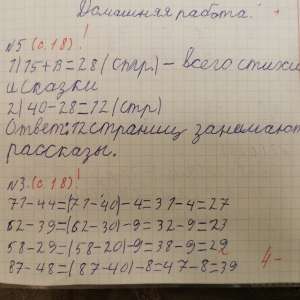 Домашняя работа.
№5 (с.18)!
1) 15+13=28 (стр.) – всего стихи
и сказки
2) 40-28=12 (стр)
Ответ: 12 страниц занимают
рассказы.
№3. (с.18)!
71-44=(71-40)-4=31-4=27
62-39=(62-30)-9=32-9=23
58-29=(58-20)-9=38-9=29
87-48=(87-40)-8=47-8=39
4-